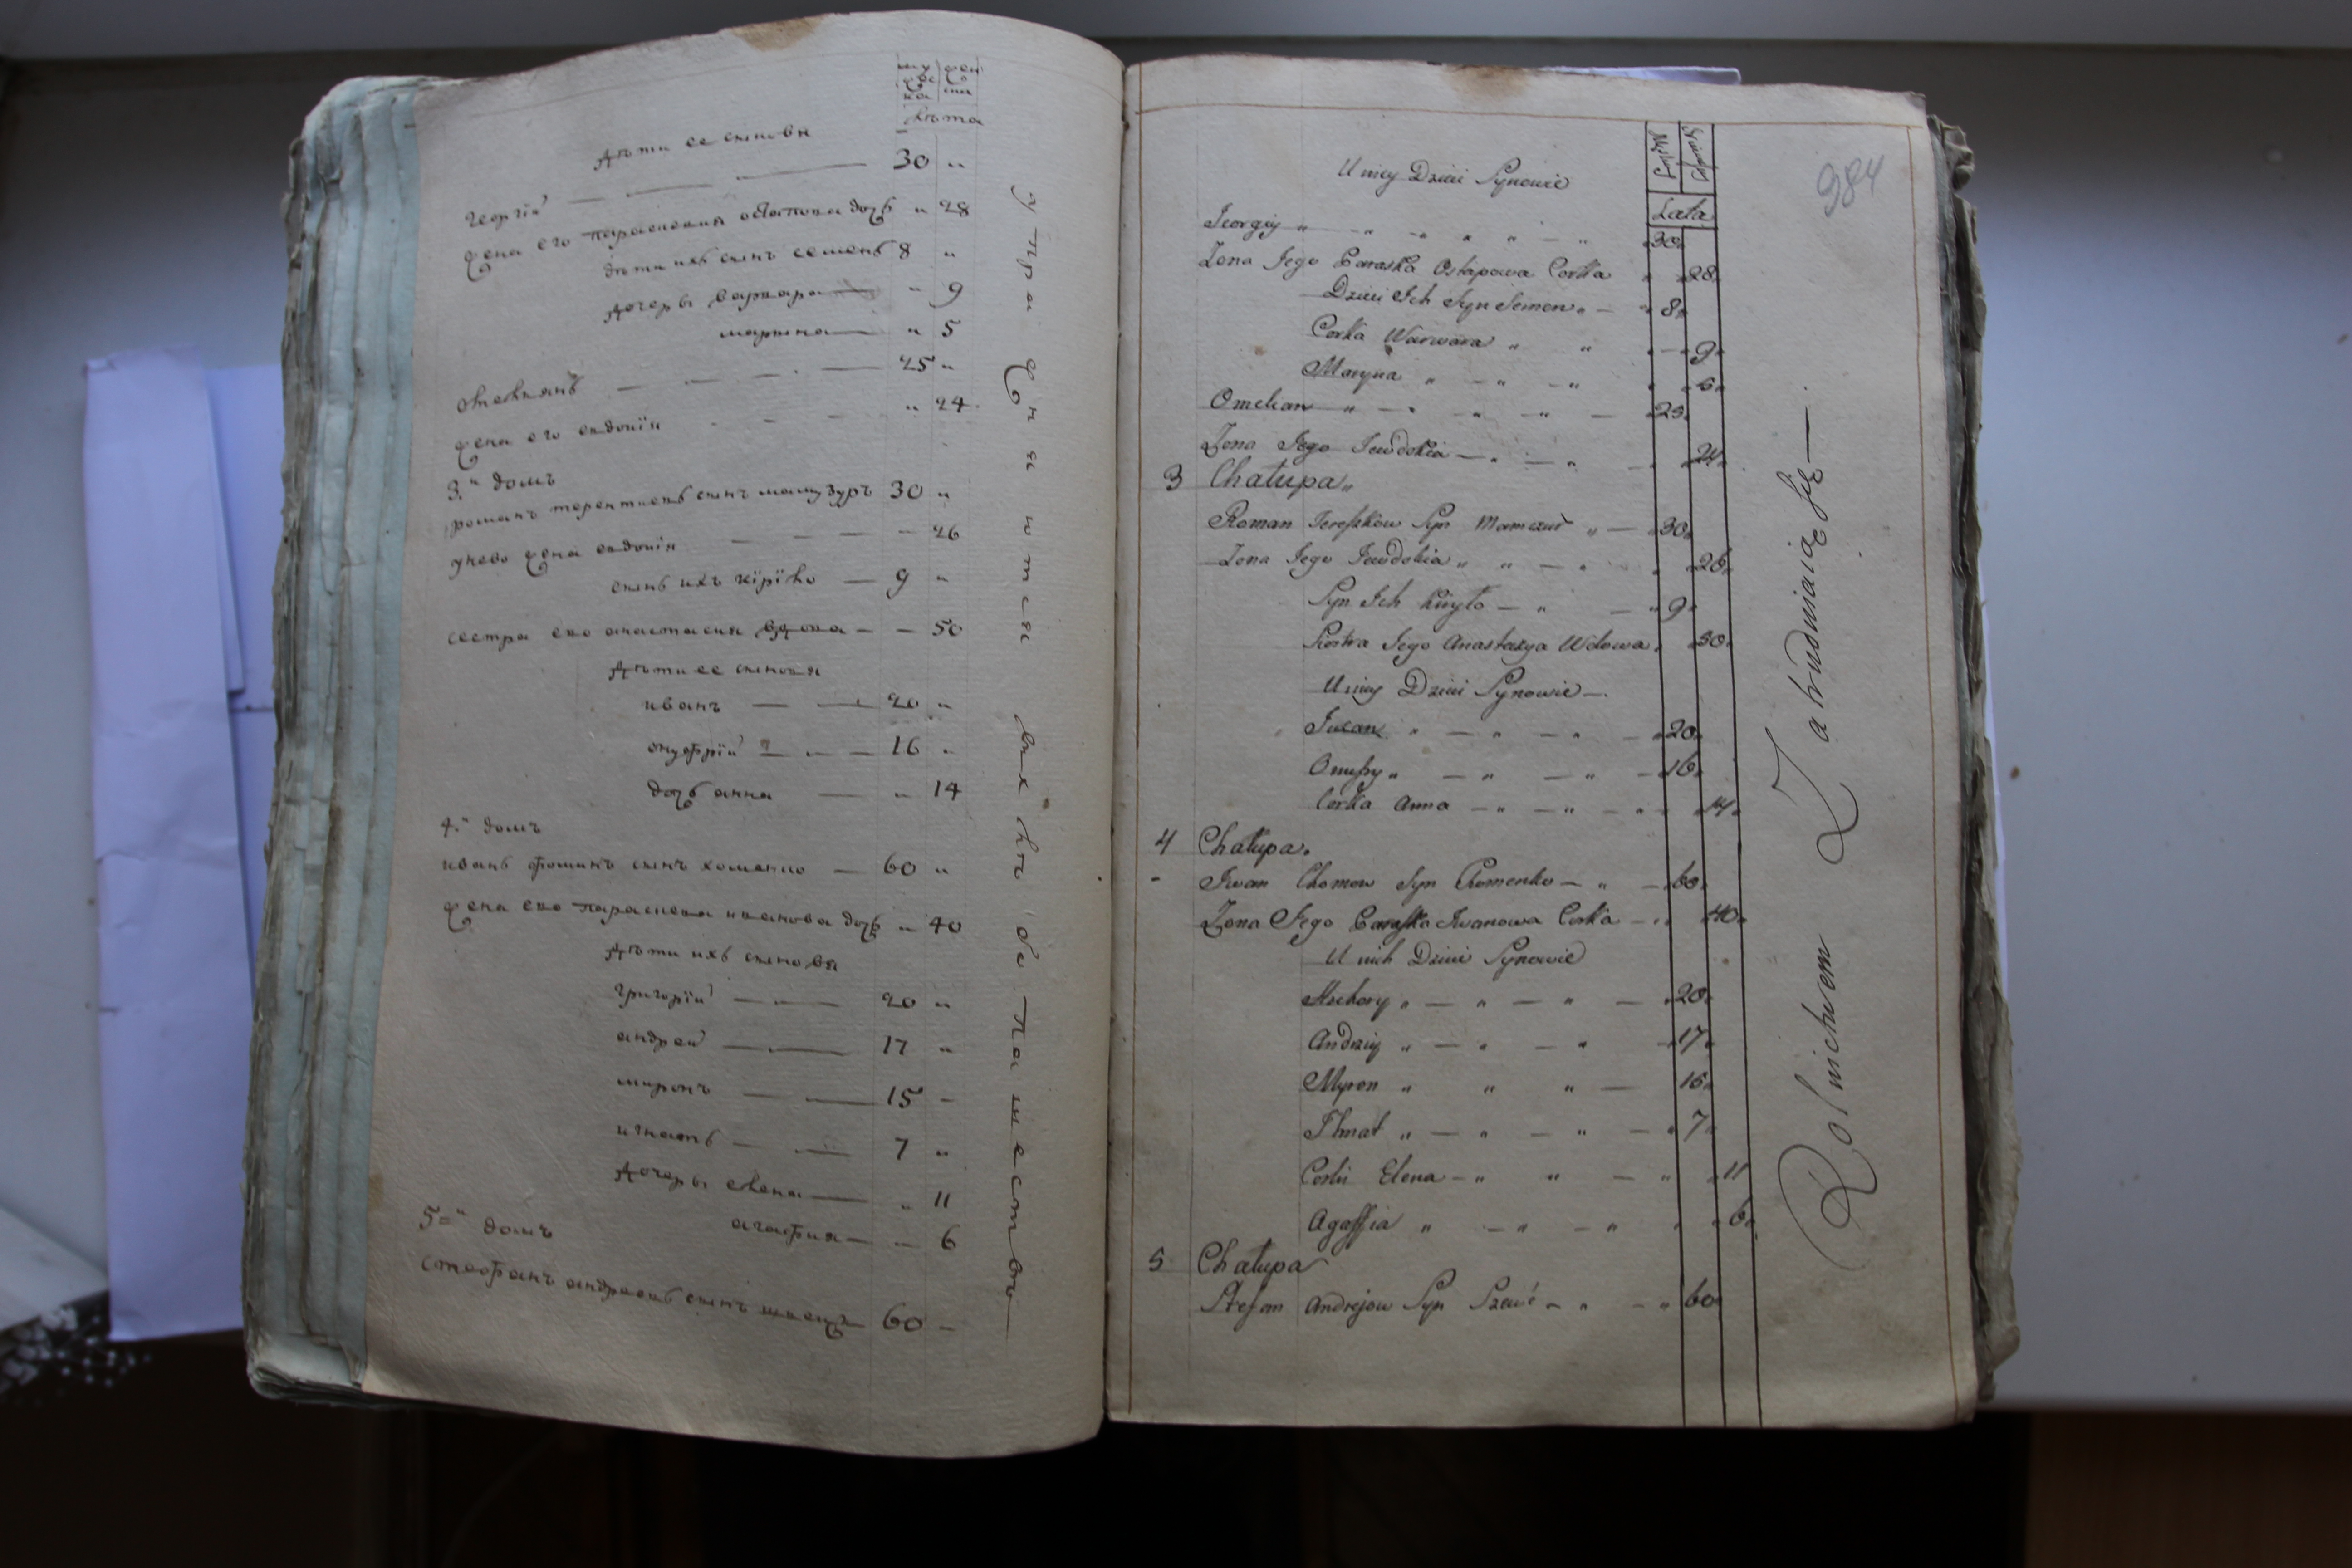 муж
ска
жен
ска
лѣта
Дѣти ее сыновя
георгій — — — 30 „
жена его параскевия остапова дочь „ 28
дѣти ихъ сынъ семенъ 8 „
дочеры варвара — „ 9
марына — „ 5
омелянъ — — — 25 „
жена его евдокія - - - „ 24
3.й домъ
романъ терентиевъ сынъ мамзуръ 30 „
у нево жена евдокія — — — 26
сынъ ихъ кірїло — 9 „
сестра ево анастасия вдова — — 50
Дѣти ее сыновя
иванъ — — 20 „
онуфрїй — — 16 „
дочь анна — „ 14
4.й домъ
иванъ фоминъ сынъ хоменко — 60 „
жена ево параскева иванова дочь „ 40
Дѣти ихъ сыновя
григорїй — — 20 „
андрей — — 17 „
миронъ — — 15 –
игнатъ — — 7 „
Дочеры елена — „ 11
агафия — — 6
5=й домъ
стефанъ андреевъ сынъ швецъ 60 –
упражняются въ хлѣбопашествѣ
984
Męzka
Lata
U niey Dzieci Synowie
Jeorgiy „ „ – „ „ – „ 30
Zona Jego Paraska Ostapowa Corka „ 28
Dzieci Ich Syn Semen „ — „ 8
Corka Warwara „ „ „ — 9
Maryna „ – „ – „ „ 5
Omelian „ — „ „ „ — 25
Zona Jego Jewdokia — „ — „ – „ 24
3 Chałupa „
Roman Tereszkow Syn Mamczur „ — 30
Zona Jego Jewdokia „ „ — „ „ 26
Syn Ich Kiryło — „ — „ 9
Siostra Jego Anastazya Wdowa „ 50
U niey Dzieci Synowie —
Iwan „ — „ — „ — 20
Onufry „ — „ — „ — 16
Corka Anna — „ — „ — „ 14
4 Chałupa.
Iwan Chomow Syn Chomenko — „ — 60
Zona Jego Paraska Iwanowa Corka — „ 40
U nich Dzieci Synowie
Hrehory „ — „ — „ — 20
Andrziy „ — „ — „ — 17
Myron „ „ „ — 15
Ihnat „ — „ — „ — „ 7
Corki Elena — „ „ — „ „ 11
Agaffia „ — „ — „ „ „ 6
5 Chałupa
Stefan Andrejow Syn Szewc — „ — „ 60
Rolnictwem Zatrudniaią się —